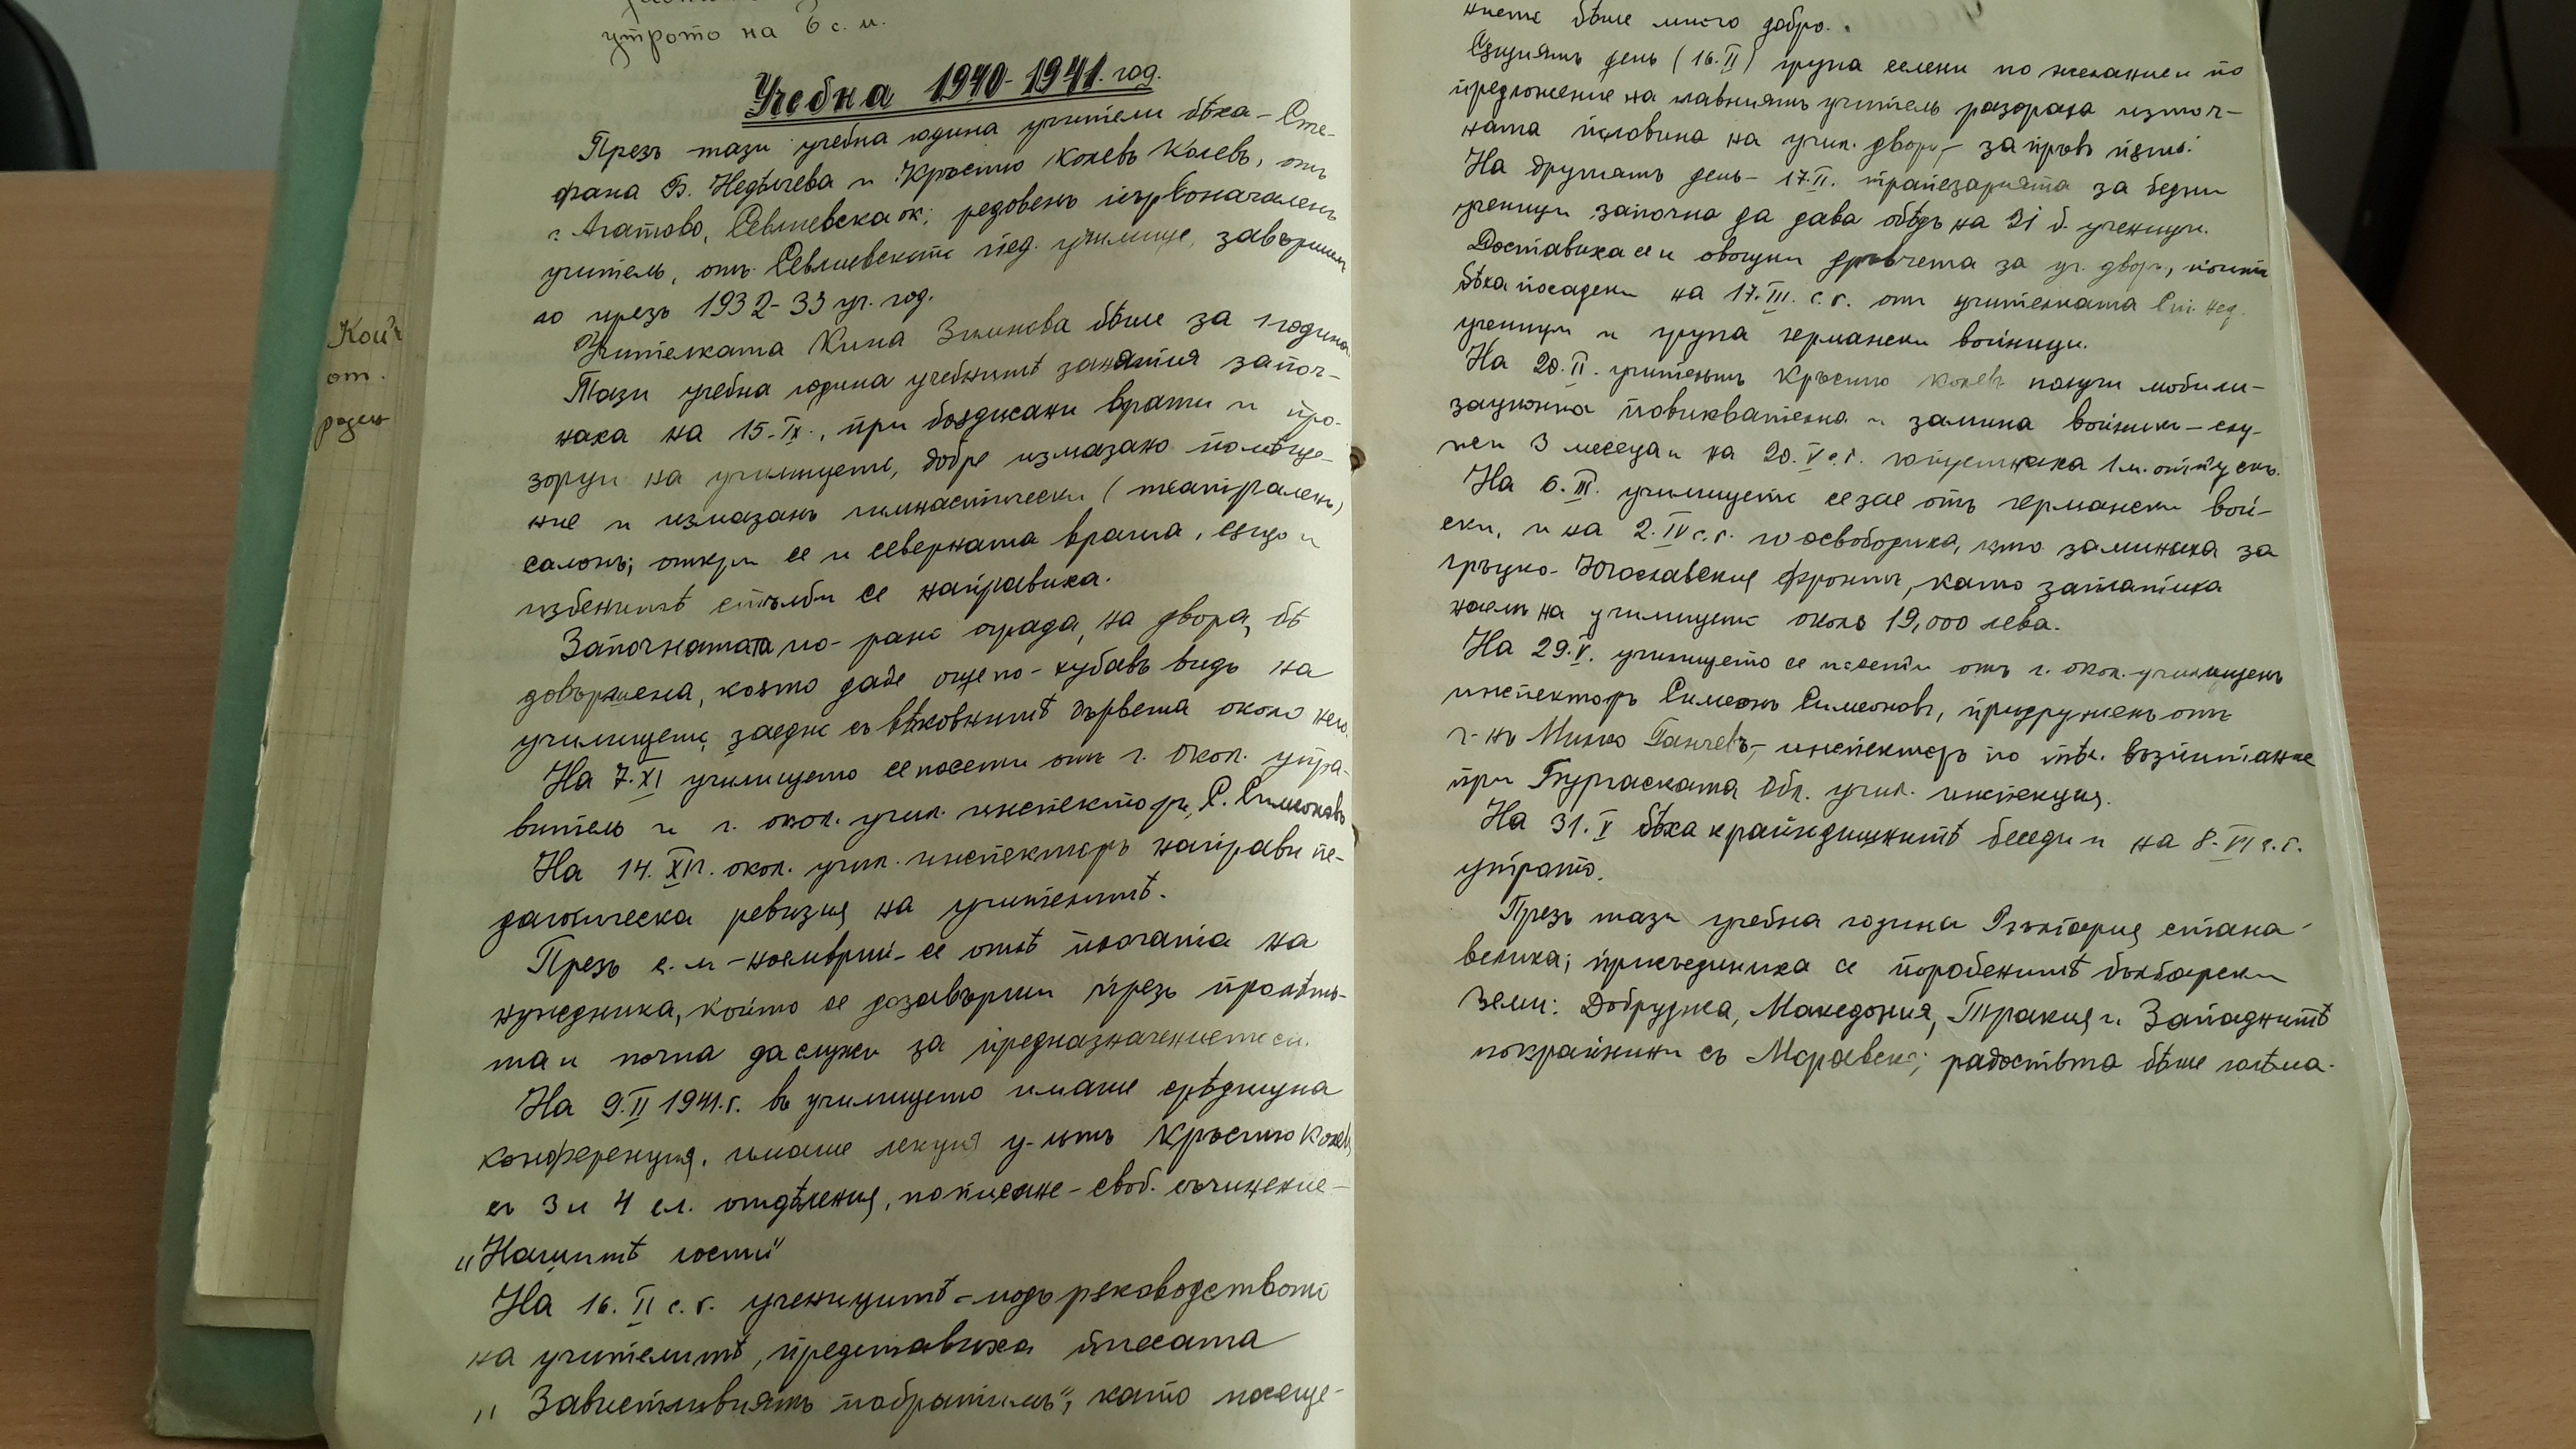 утрото на 6 с. м.
Учебна 1940-1941. год.
Презъ тази учебна година учители бѣха – Сте-
фана Б. Недѣлчева и Кръстю Колевъ Колевъ, отъ
с. Агатово, Севлиевска ок; редовенъ първоначаленъ
учитель, отъ Севлиевското пед. училище, завършил
го презъ 1932-33 уч. год.
Учителката Кина Зжикова бѣше за 1 година.
Тази учебна година учебнитѣ занятия започ-
наха на 15.IX., при боядисани врати и про-
зорци на училището, добре измазано помѣще-
ние и измазанъ гимнастически (театраленъ)
салонъ; откри се и северната врата, също и
избенитѣ стълби се направиха.
Започната по-рано ограда, на двора, бѣ
довършена, която даде още по-хубавъ видъ на
училището, заедно съ вѣковнитѣ дървета около него.
На 7.XI училището се посети отъ г. Окол. упра-
витель и г. окол. учил. инспекторъ, С. Симеоновъ
На 14.XI г. окол. учил. инспекторъ направи пе-
дагогическа ревизия на учителитѣ.
Презъ с. м – ноемврий – се отпѣ
нужника, който се дозавърши презъ пролѣть-
та и почна да служи за предназначението си.
На 9.II 1941.г. въ училището имаше срѣдищна
конференция, имаше лекция у-льтъ Кръстю Колевъ
съ 3 и 4 сл. отдѣления, по писане – своб. съчинение –
„Нашитѣ гости"
На 16. II с. г. ученицитѣ – подъ рѫководството
на учителитѣ, представиха пиесата
„Завистливиятъ побратимъ", като посеще-
нието бѣше много добро.
Сѫщиятъ день (16.II) група селени по желание и по
предложение на главниятъ учитель разораха източ-
ната половина на учил. дворъ, – за пръвъ пѫть.
На другиятъ день – 17.II. трапезарията за бедни
ученици започна да дава обѣдъ на 21 б. ученици.
Доставиха се и овощни дръвчета за уч. дворъ, които
бѣха посадени на 17.III. с. г. отъ учителката Ст. Нед.
ученици и група германски войници.
На 20.II. учительтъ Кръстю Колевъ получи мобили-
зационна повиквателна и замина войникъ – слу-
жи 3 месеца и на 20. V с. г. го пуснаха 1 м. отпускъ.
На 6. III. училището се зае отъ германски вой-
ски, и на 2. IV с. г. го освободиха, што заминаха за
гръцко-Югославския фронтъ, като заплатиха
наемъ на училището около 19,000 лева.
На 29.V. училището се посети отъ г. окол. училищенъ
инспекторъ Симеонъ Симеоновъ, придруженъ отъ
г-нъ Минко Ганчевъ, – инспекторъ по тѣл. възпитание
при Бургаската Обл. учил. инспекция.
На 31. V бѣха крайнодишнитѣ беседи и на 8. VI с. г.
утрото.
Презъ тази учебна година България стана
велика; присъединиха се поробенитѣ български
земи: Добруджа, Македония, Тракия и Западнитѣ
покрайнини съ Моравско; радостьта бѣше голѣма.
Кой
от.